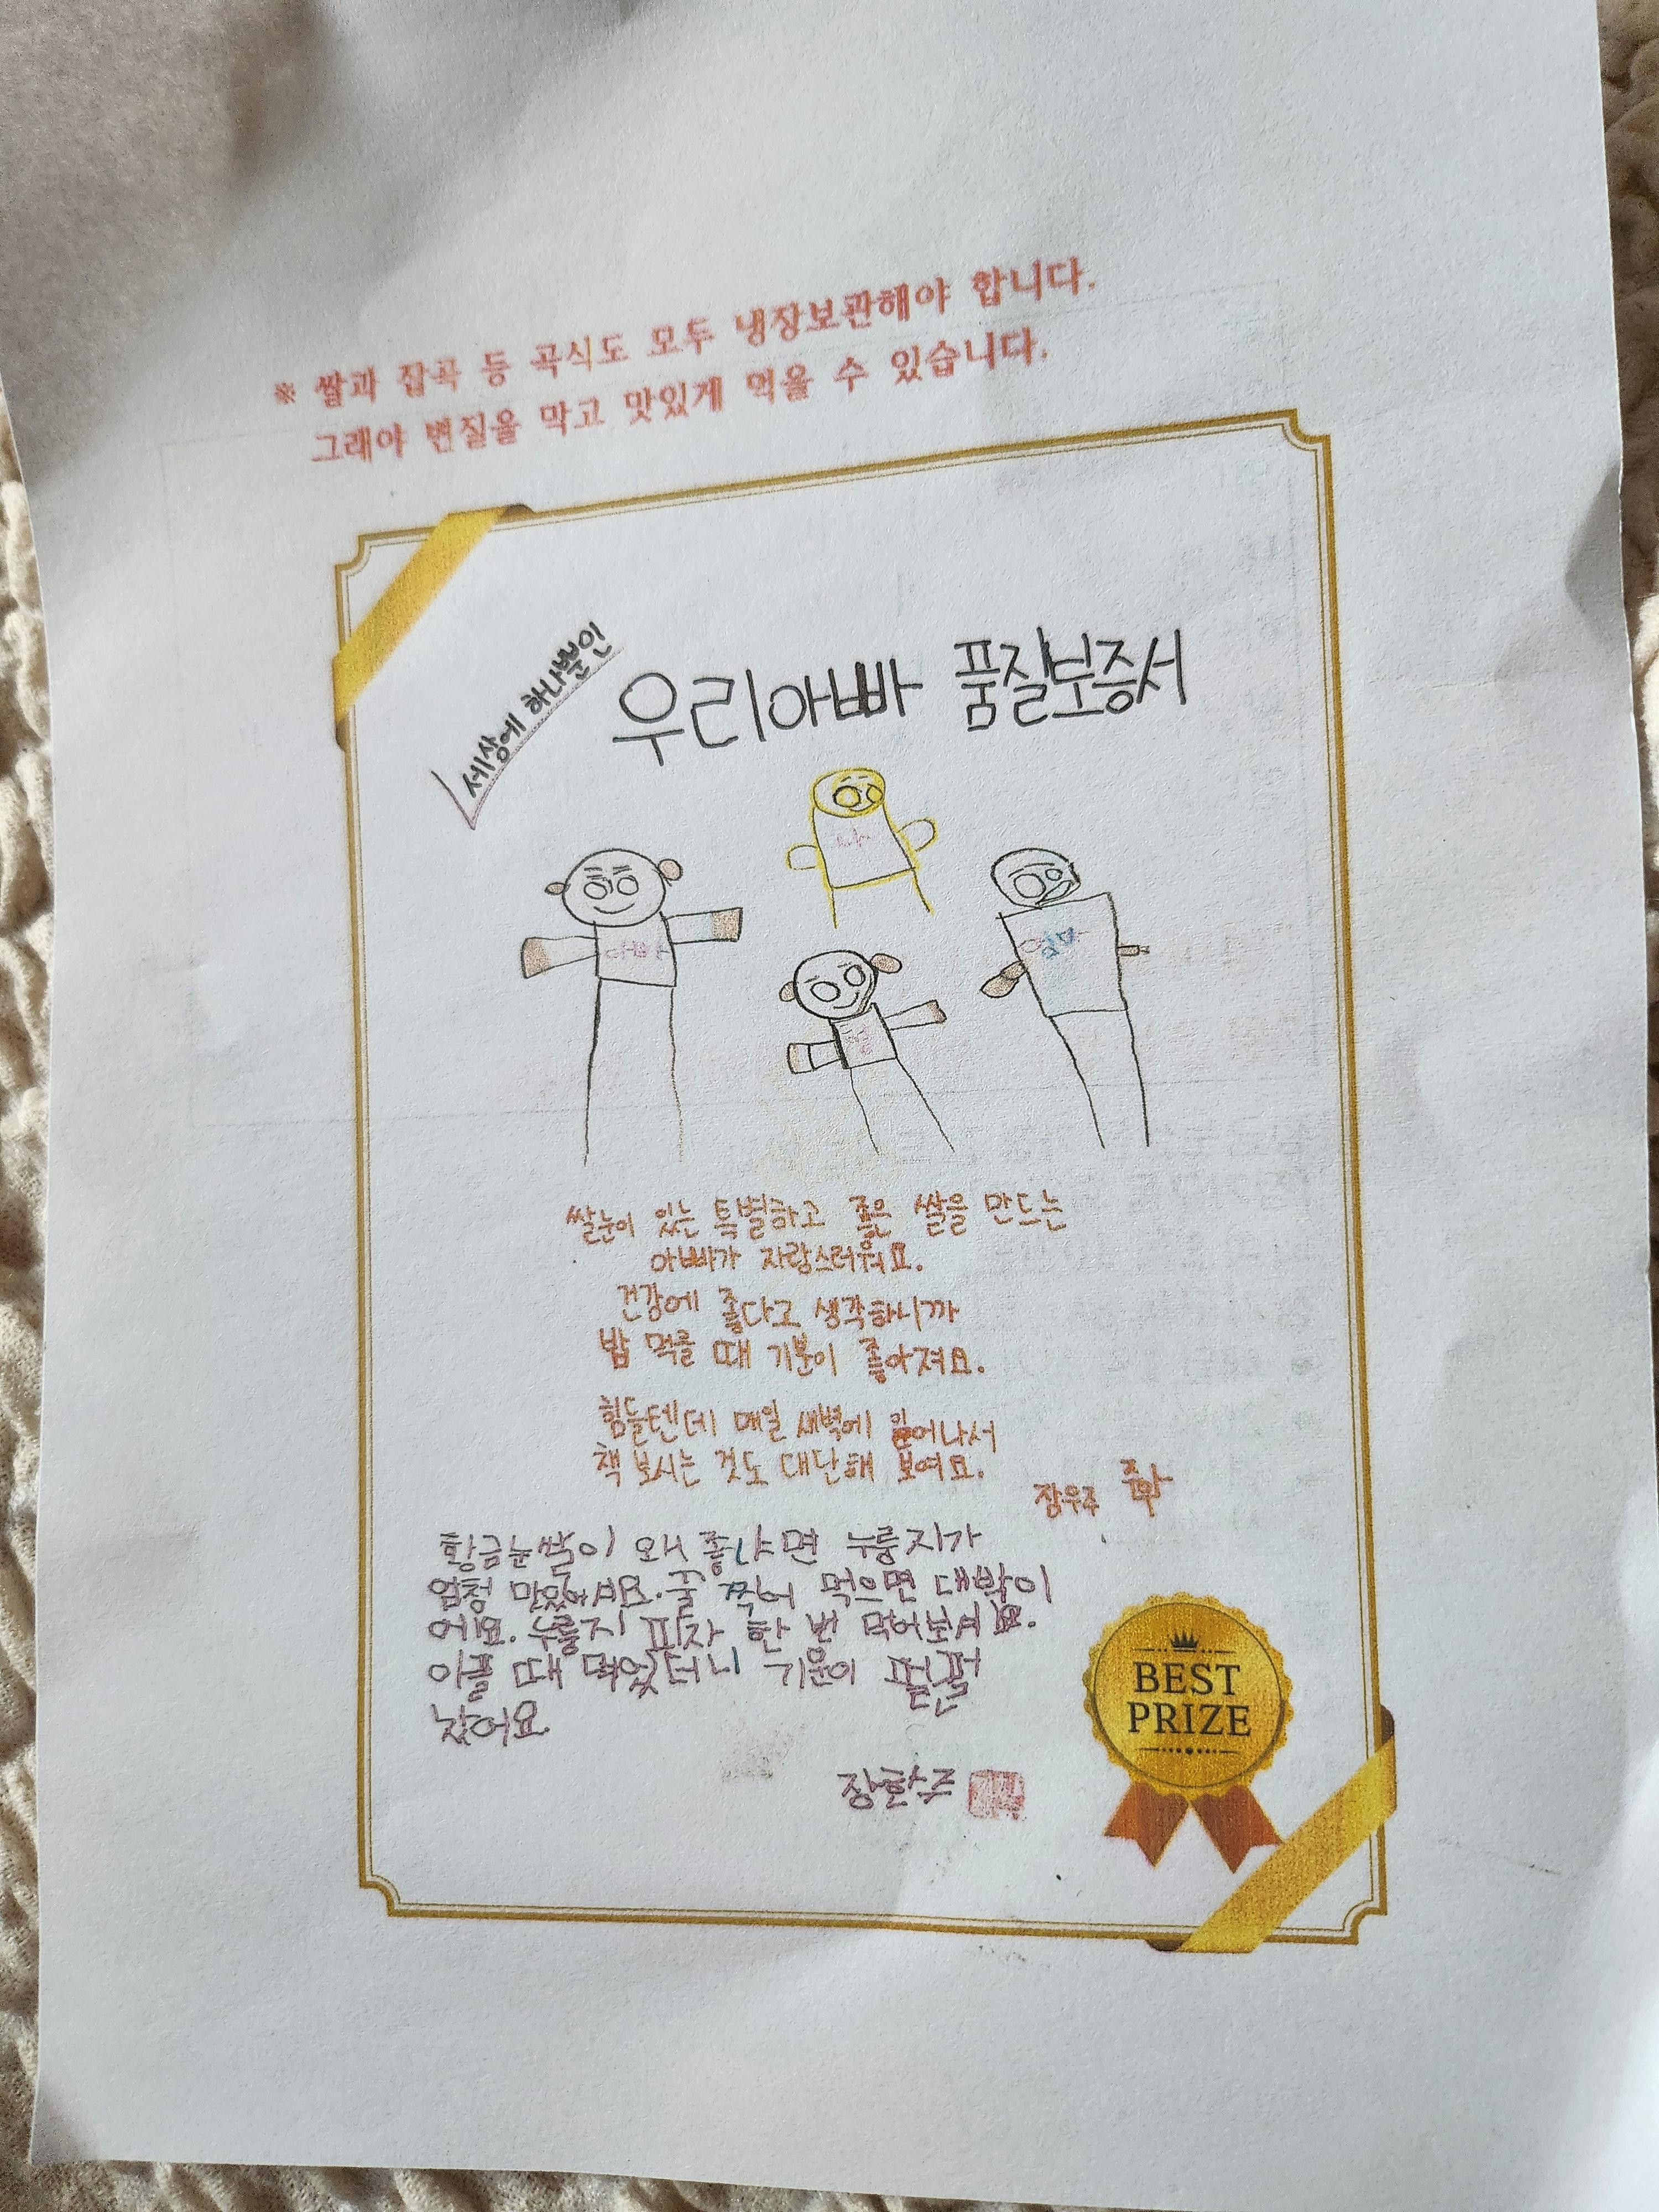 ※ 쌀과 잡곡 등 곡식도 모두 냉장보관해야 합니다.
그래야 변질을 막고 맛있게 먹을 수 있습니다.
세상에 하나뿐인
우리아빠 품질보증서
아빠
엄마
쌀눈이 있는 특별하고 좋은 쌀을 만드는
아빠가 자랑스러워요.
건강에 좋다고 생각하니까
밥 먹을 때 기분이 좋아져요.
힘들텐데 매일 새벽에 일어나서
책 보시는 것도 대단해 보여요.
장우주
황금눈쌀이 왜 좋냐면 누룽지가
엄청 맛있어셔요. 꿀 찍어 먹으면 대박이
에요. 누룽지 피자 한 번 먹어보셔요.
아플 때 먹었더니 기운이 펄펄
났어요.
장한주
BEST
PRIZE